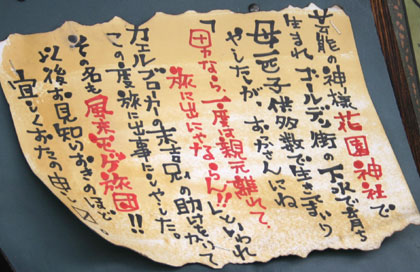 芸能の神様花園神社で
生まれゴールデン街の下水で育ち
母一匹子供多数で生きてまいり
やしたが、おっかさんにね
「男なら、一度は親元離れて、
旅に出にゃならん!!」といわれ
カエルブローカーの末吉兄の助けをかりて
この度旅に出る事にしやした。
その名も風来 旅団!!
以後お見知りおきのほど
宜しくおたの申します